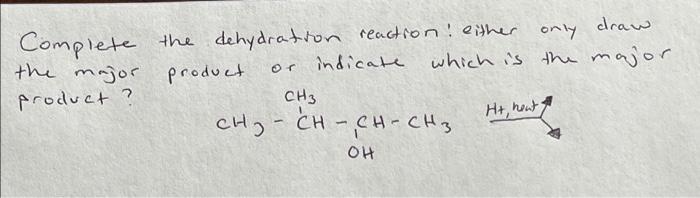 Complete the dehydration reaction! either only draw
the major product or indicate which is the major
product?
CH3
CH3 - CH - CH - CH3 H+, heat
OH